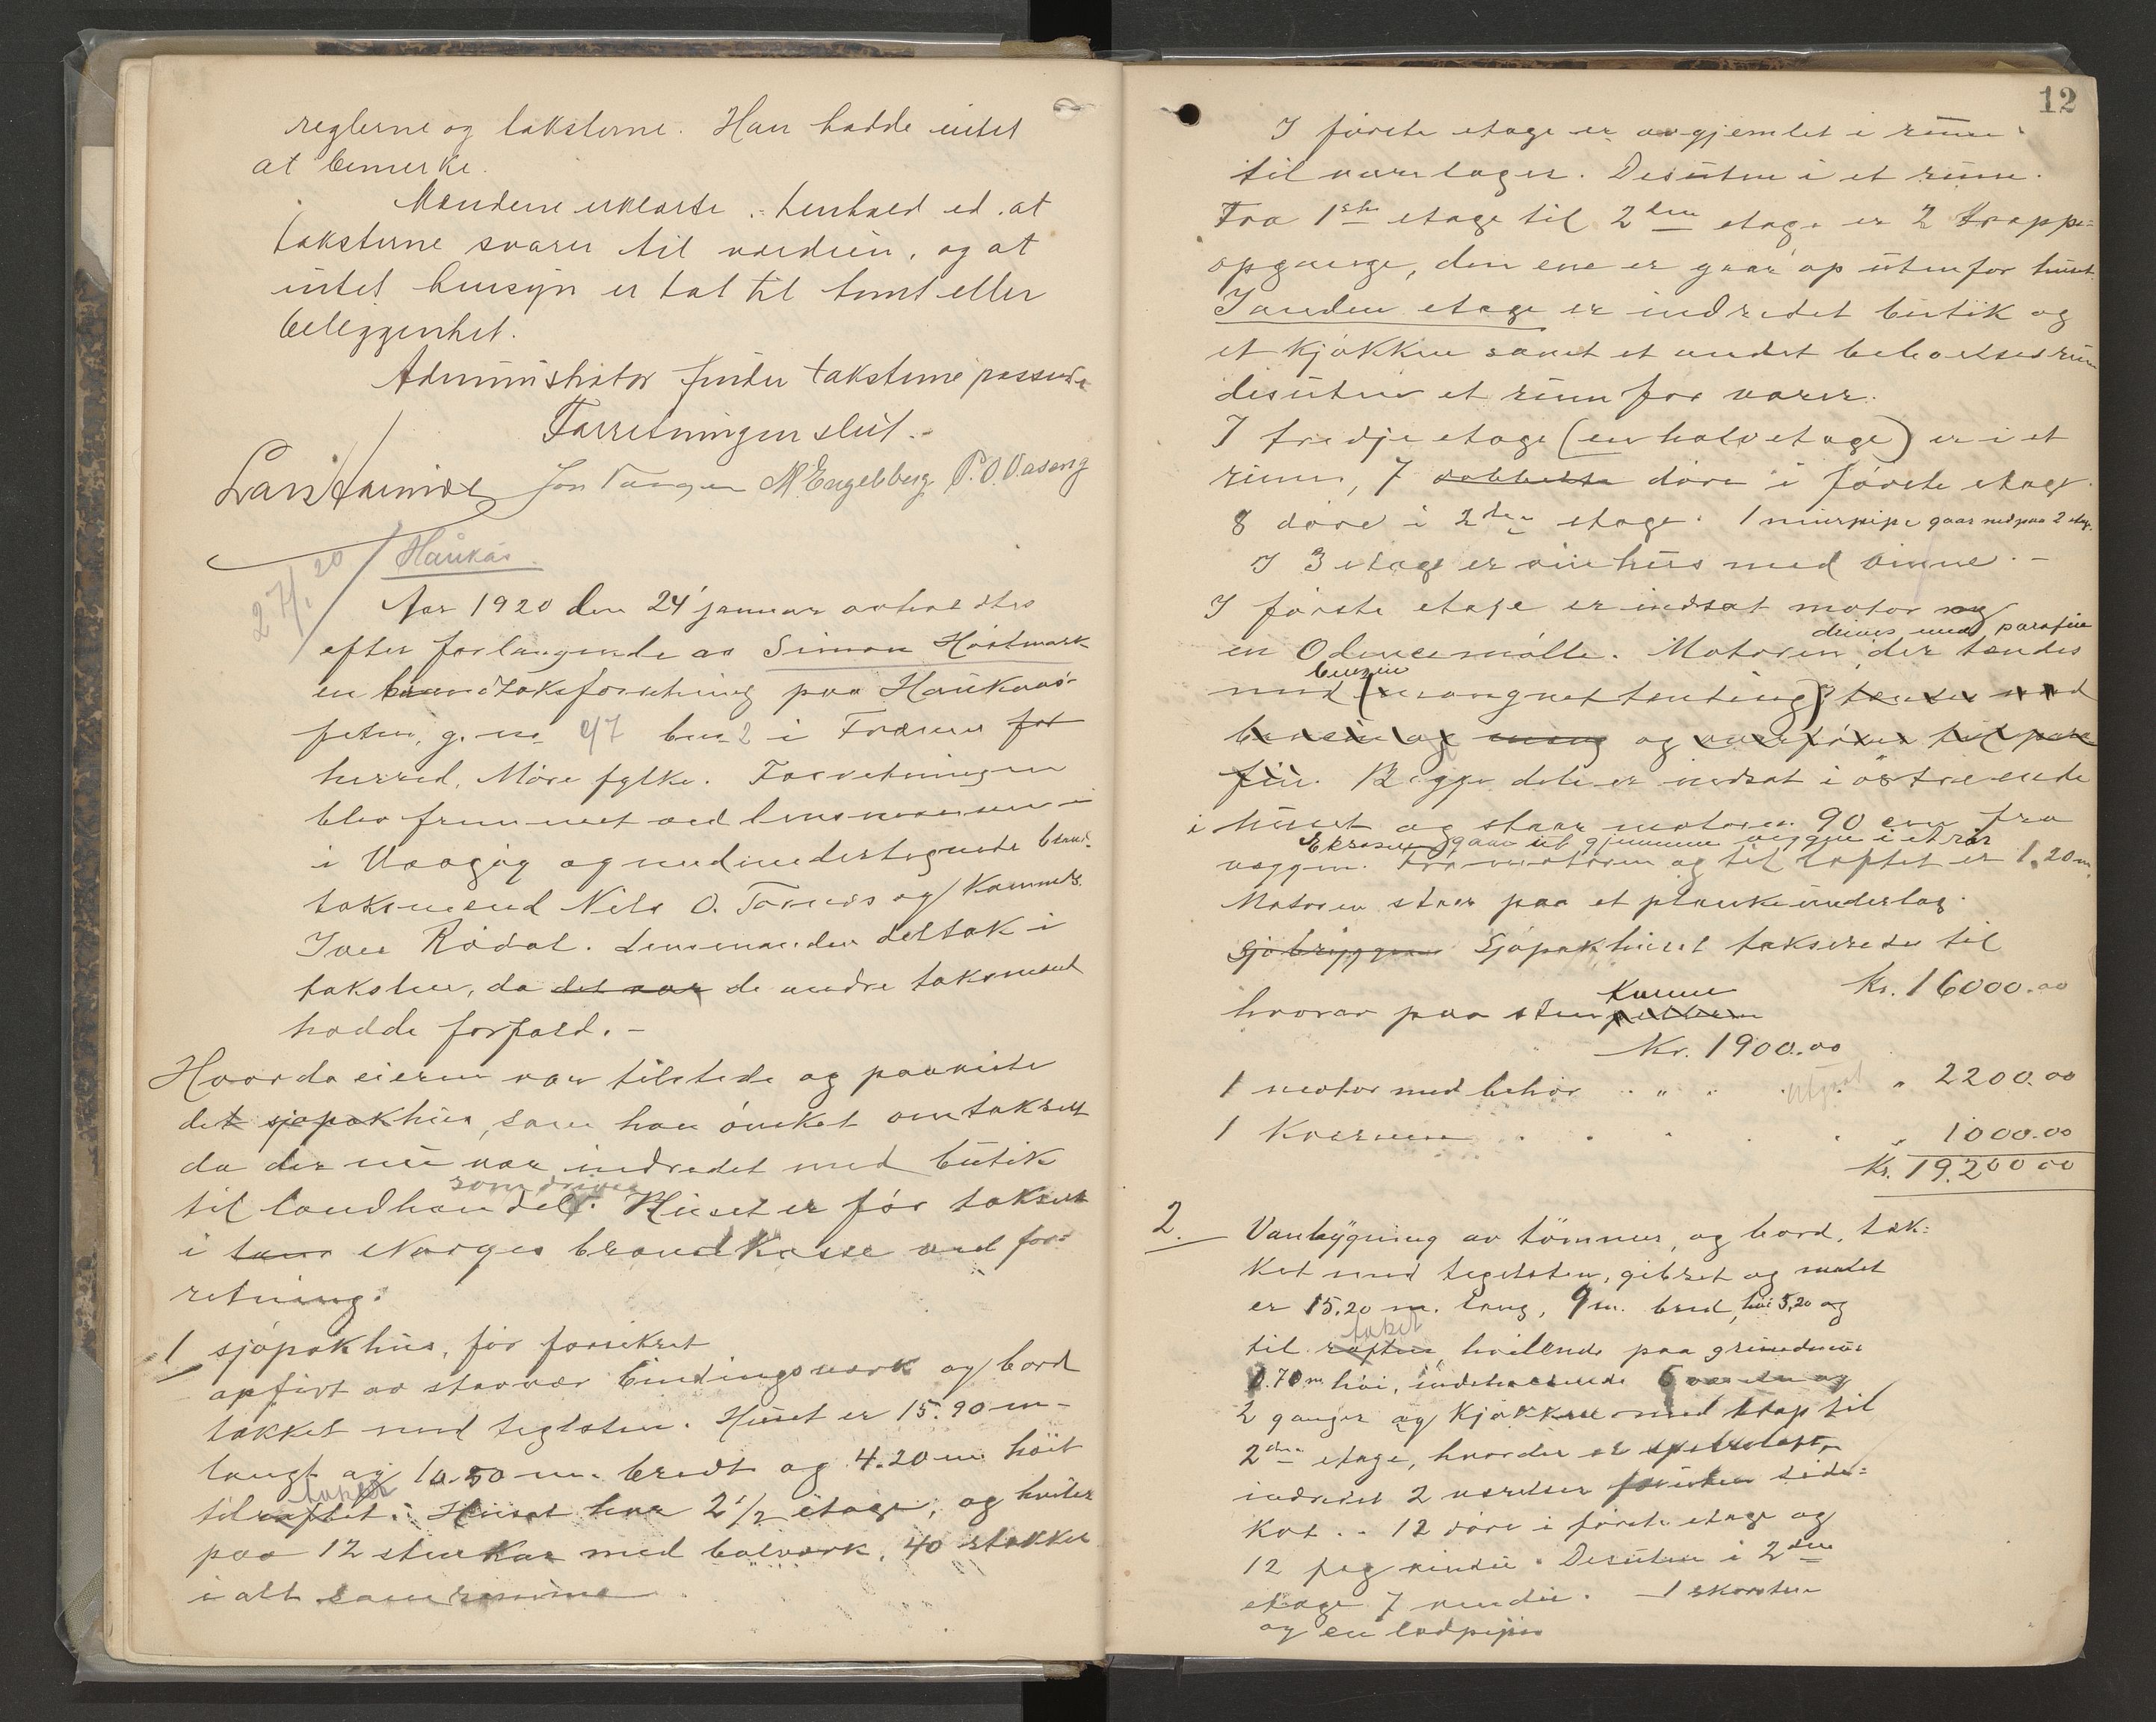 reglerne og taksterne. Han hadde intet
at bemerke.
Mændene erklærte i henhold ed. at
taksterne svarer til værdien, og at
intet hensyn er tat til tomt eller
beliggenhet.
Administrator finder taksterne passende
Forretningen slut.-
Lars Hammer Jon M. Engelberg P. O. Vaseng
27/1 20 Haukås.
Aar 1920 den 24 januar avholdtes
efter forlangende av Simon Hostmark
en brandtaksforretning paa Haukaas-
g. no 47 bno 2 i Fræna
herred, Møre fylke. Forretningen
blev fremmet ved lensmannen
i Vaagøy og med undertegnede brand-
taksmænd Nils O. Tornes og
Iver Rødal. Lensmanden deltok i
taksten, da det var de andre taksmænd
hadde forfald.-
Hvorda eieren var tilstede og paaviste
det sjøpakhus, som han ønsket omtaksert
da der nu var indredet med butik
som drives
til landhandel. Huset er før taksert
i Norges brandkasse ved for-
retning.
1 sjøpakhus, før forsikret
opført av stavvær bindingsverk og bord
tækket med teglsten. Huset er 15.90 m-
langt og 10.50 m. bredt og 4.20 m høit
taket
til røftet. Huset har 2 1/2 etage, og hviler
paa 12 stenkar med bolverk. 40 stokker
i alt
12
I første etage er avgjemlet i rum
til varelager. Desuten i et rum.
Fra 1ste etage til 2den etage er 2 trappe-
opgange, den ene er gaar op utenfor huset.
I anden etage er indredet butik og
et kjøkken samt et andet beboelsesrum
desuten et rum for varer.
I tredje etage (en halv etage) er i et
rum, 7 dobbelte døre i første etage.
8 døre i 2den etage. 1 murpipe gaar ned paa 2 etage.
I 3 etage er vinhus med vinne.-
I første etage er indsat motor og
drives med parafin
en Odensemølle. Motoren, der tændes
benzin
med (mangnettenting) tændes med
bensin og og overføres til para
fin. Begge dele er indsat i østre ende
i huset og staar motoren 90 cm fra
Eksosen gaar ut gjennem væggen i et rør
væggen. Fra motoren og til loftet er 1.20 m.
Motoren staar paa et plankeunderlag.
Sjøbryggen Sjøpakhuset takseredes til
Kr. 16000.00
Karrene
hvorav paa sten
Kr. 1900.00
1 motor med behør " " " 2200.00
1 Kværnen " 1000.00
Kr. 19.200 00
2. Vanbygning av tømmer, og bord, tæk-
ket med teglsten, gibset og malet
er 15.20 m. lang, 9 m. bred, høi 5,20 og
taket
til røften hvilende paa grundmur
0.70 m høi, indeholdende 6 værelser og
2 ganger og kjøkken med trap til
2den etage, hvorder er
indredet 2 værelser foruten side-
kot.. 12 døre i første etage og
12 fag vindu. Desuten i 2den
etage 7 vindu. 1 skorsten
og en